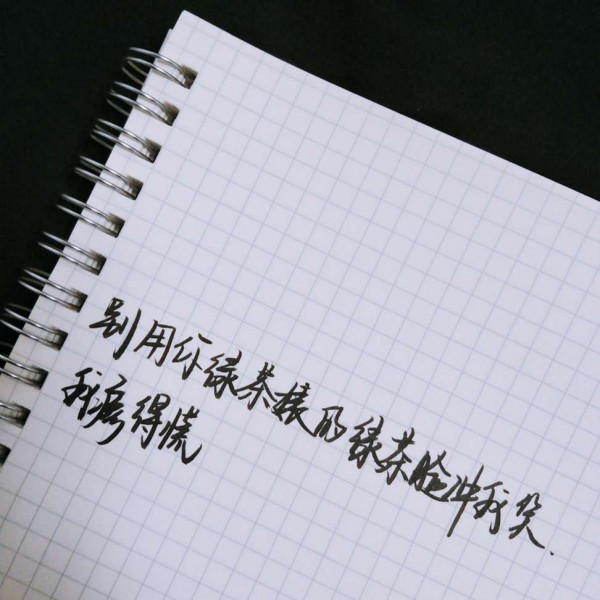 别用你绿茶婊的绿茶脸冲我笑.
我瘆得慌